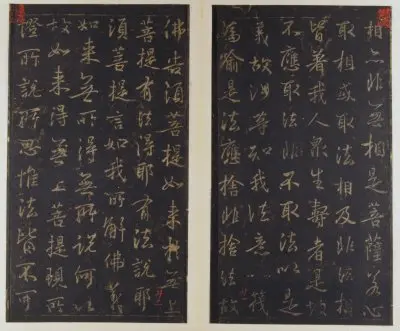 相亦非無相是菩薩若心
取相或取法相及非法相
皆著我人眾生壽者是故
不應取法非不取法以是
義故汝等知我法意筏
喻是法應捨非捨法故
佛告須菩提如來於無上
菩提有法得耶有法說耶
須菩提言如我所解佛義
如來無所得無所說何以
故如來得無上菩提所
證所說思惟法皆不可